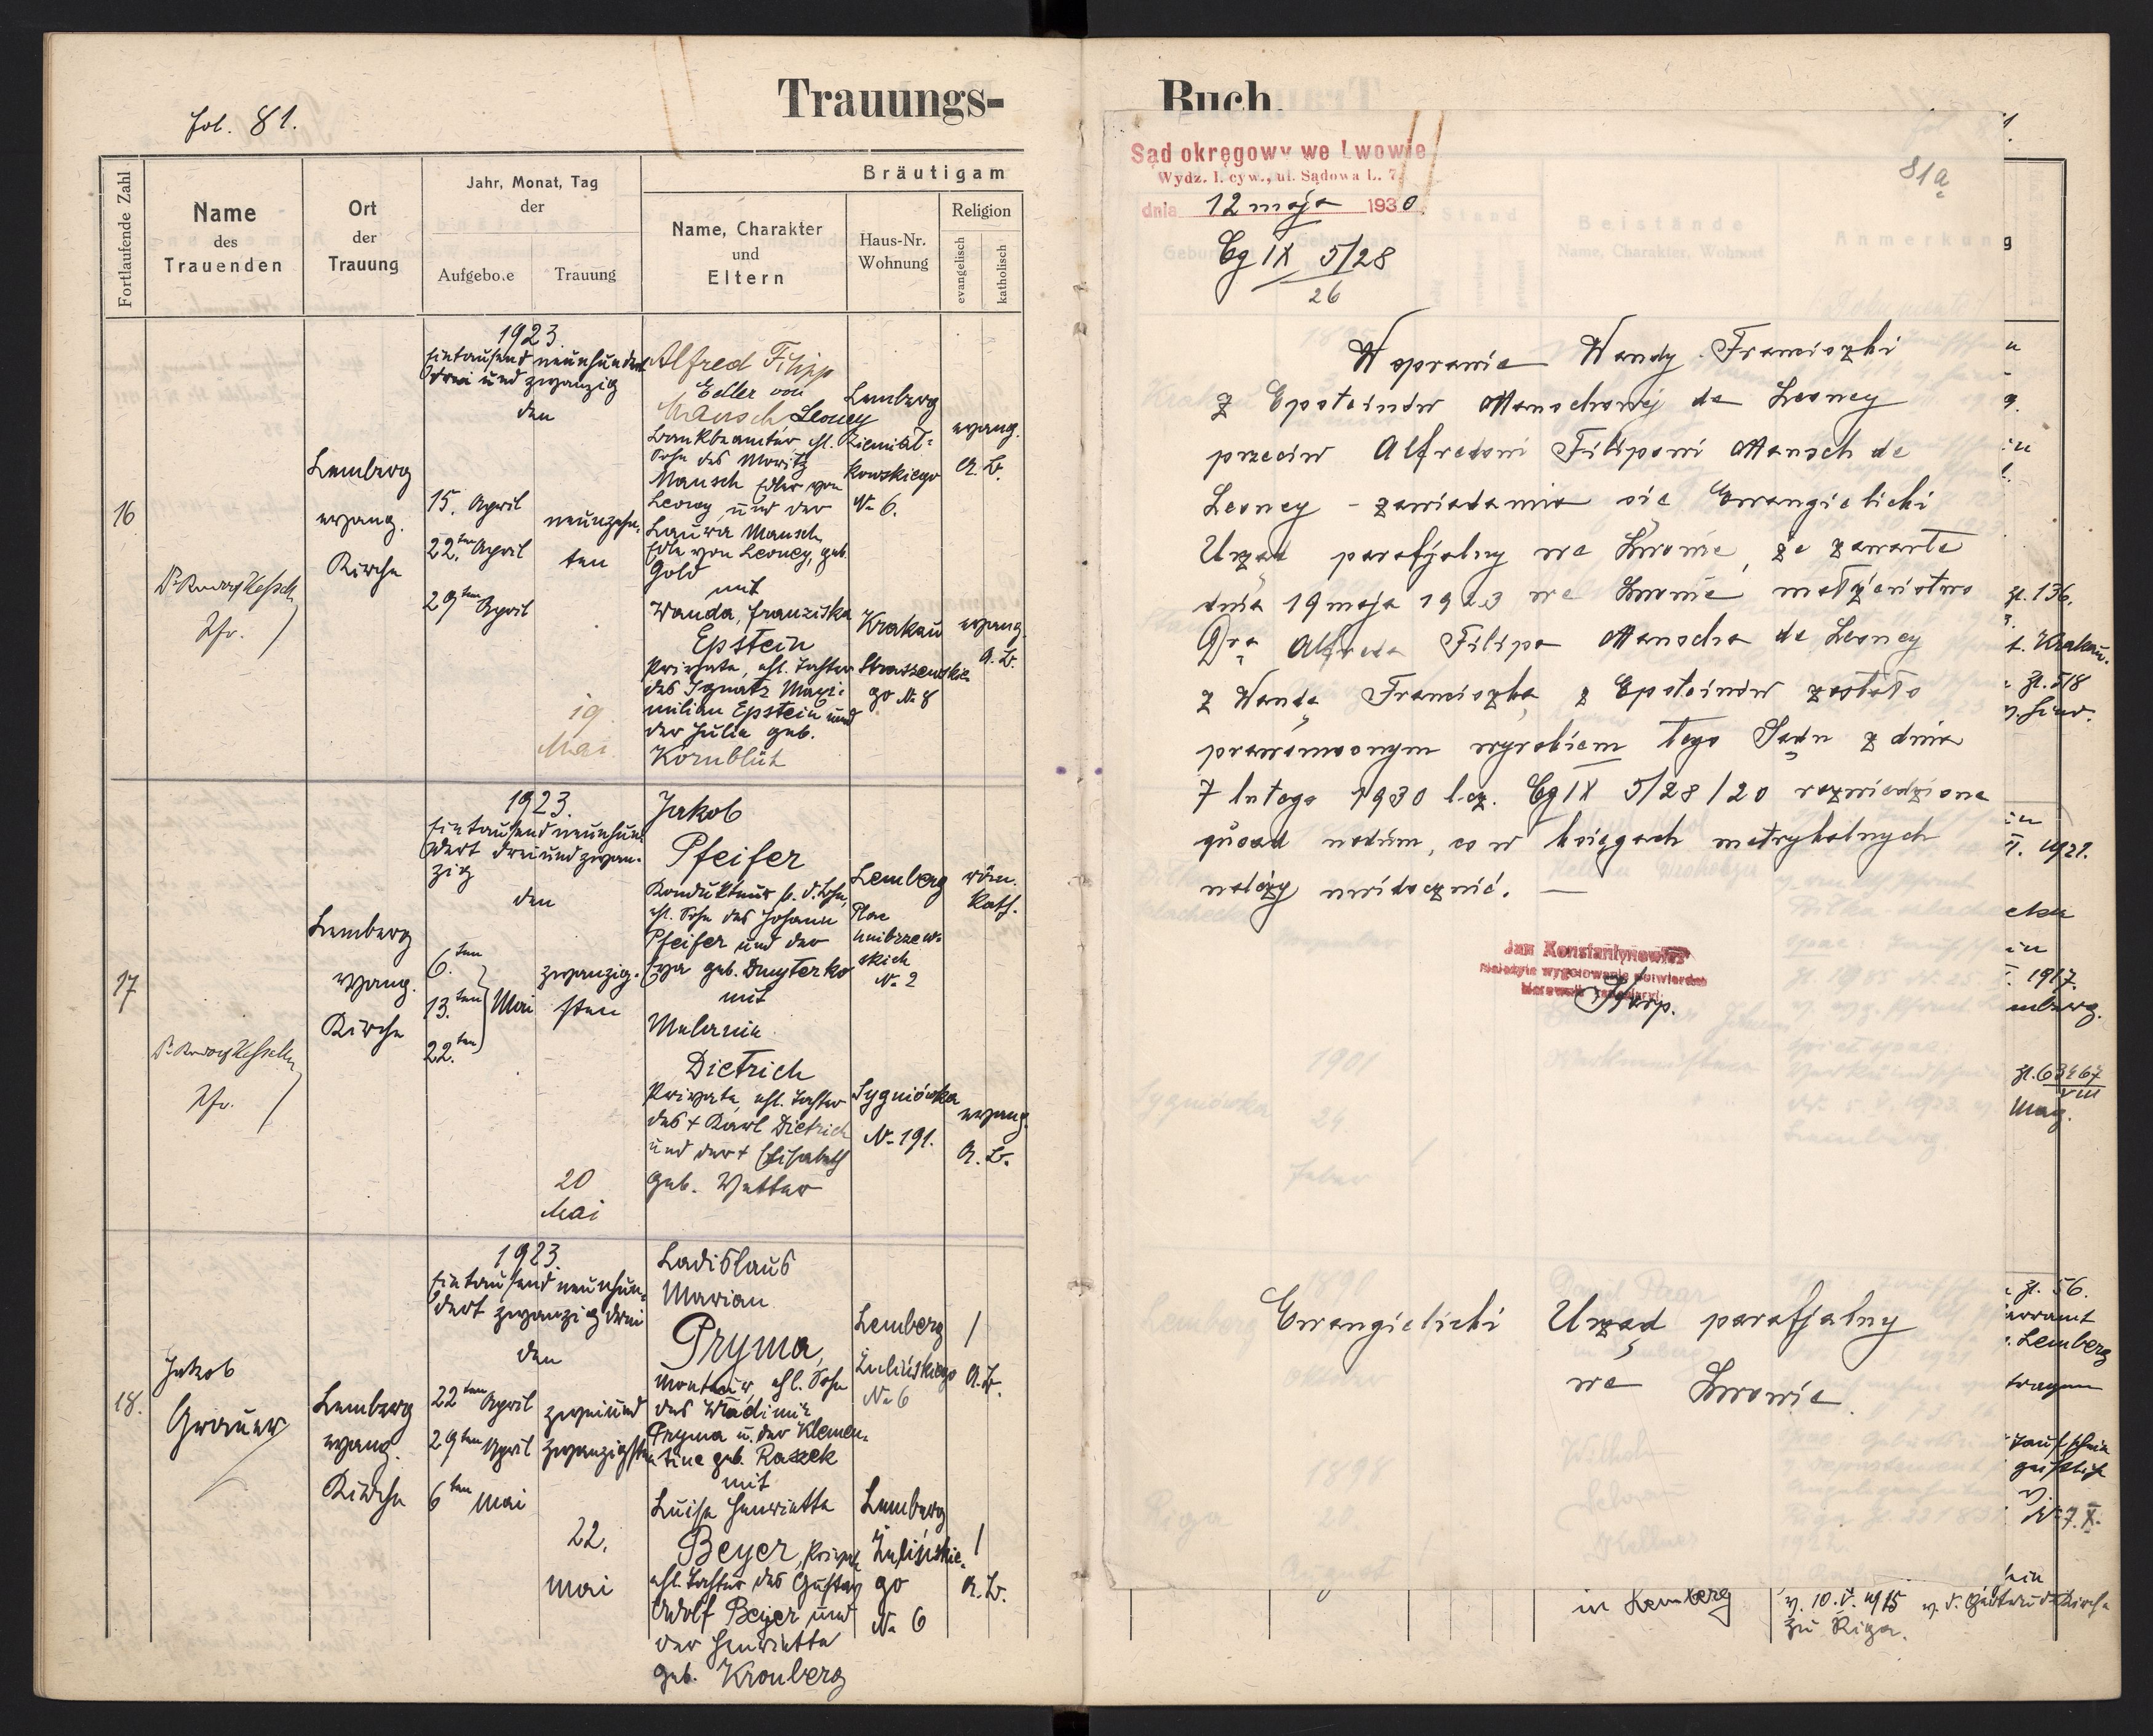 fol. 81.
Trauungs-
Fortlaufende Zahl
Name
des
Trauenden
Ort
der
Trauung
Jahr, Monat, Tag
der
Aufgebote
Trauung
Bräutigam
Name, Charakter
und
Eltern
Haus-Nr.
Wohnung
Religion
evangelisch
katholisch
16
Lemberg
evang.
Kirche
1923.
Eintausend neunhundert
drei und zwanzig
den
15. April
22.ten April
29ten April
neunzehn-
ten
19.
Mai
Alfred Filipp
Edler von
Mansch Leoney
Bankbeamter, ehl.
Sohn des Moritz
Mansch Edler von
Leoney und der
Laura Mansch,
Edle von Leoney, geb.
Gold
mit
Wanda, Franziska
Epstein
Private, ehl. Tochter
des Ignatz Maxi-
milian Epstein und
der Julia geb.
Kornblüt
Lemberg
Ziemiał-
kowskiego
No 6.
Krakau
Straszewskie-
go No 8
evang.
A. B.
evang.
A. B.
17
Lemberg
evang.
Kirche
1923.
Eintausend neunhun-
dert dreiundzwan-
zig
den
6.ten
13.ten Mai
22.ten
zwanzig-
sten
20
Mai
Jakob
Pfeifer
Kondukteur
ehl. Sohn des Johann
Pfeifer und der
Eva geb. Dmyterko
mit
Melanie
Dietrich
Private, ehl. Tochter
des + Karl Dietrich
und der + Elisabeth
geb. Vetter
Lemberg
Plac
Unibrzew-
skich
No 2
Sygniówka
No 191.
röm.
kath.
evang.
A. B.
18.
Jakob
Grauer
Lemberg
evang.
Kirche
1923.
Eintausend neunhun-
dert zwanzig drei
den
22ten April
29ten April
6ten Mai
zweiund
zwanzigsten
22.
Mai
Ladislaus
Marian
Pryma,
Monteur, ehl. Sohn
des Wladimir
Pryma u. der Klemen-
tine geb. Raszek
mit
Luise Henriette
Beyer, Private
ehl. Tochter des Gustav
Adolf Beyer und
der Henriette
geb. Kronberg
Lemberg
Żulińskiego
No 6
Lemberg
Żulińskie-
go
No 6
A. B.
A. B.
Buch.
81a
Sąd okręgowy we Lwowie
Wydz. I. cyw., ul. Sądowa L. 7.
dnia 12 maja 1930.
Cg IX 5/28
26
W sprawie Wandy Franciszki
z Epsteinów Manschowej de Leoney
przeciw Alfredowi Filipowi Mansch de
Leoney - zawiadamia sie Ewangielicki
Urząd parafjalny we Lwowie, że zawarte
dnia 19 maja 1923 we Lwowie małżeństwo
Dra Alfreda Filipa Manscha de Leoney
z Wandą Franciszką z Epsteinów zostało
prawomocnym wyrokiem tego Sądu z dnia
7 lutego 1930 l.cz. Cg IX 5/28/20 rozwiedzione
quoad vinculum, co w księgach metrykalnych
należy uwidocznić. —
Jan Konstantynowicz
Należyte wygotowanie potwierdza
kierownik kancelarji:
Ewangielicki Urząd parafjalny
we Lwowie.
zl. 136.
t. Krakau.
zl. 518
1921.
1917.
mberg.
Mag.
zl. 56.
arramt
. Lemberg
tragen
Taufschein
geistlich
in Lemberg
v. 10. V. 1915 v. d. Gertrudkirche
zu Riga.